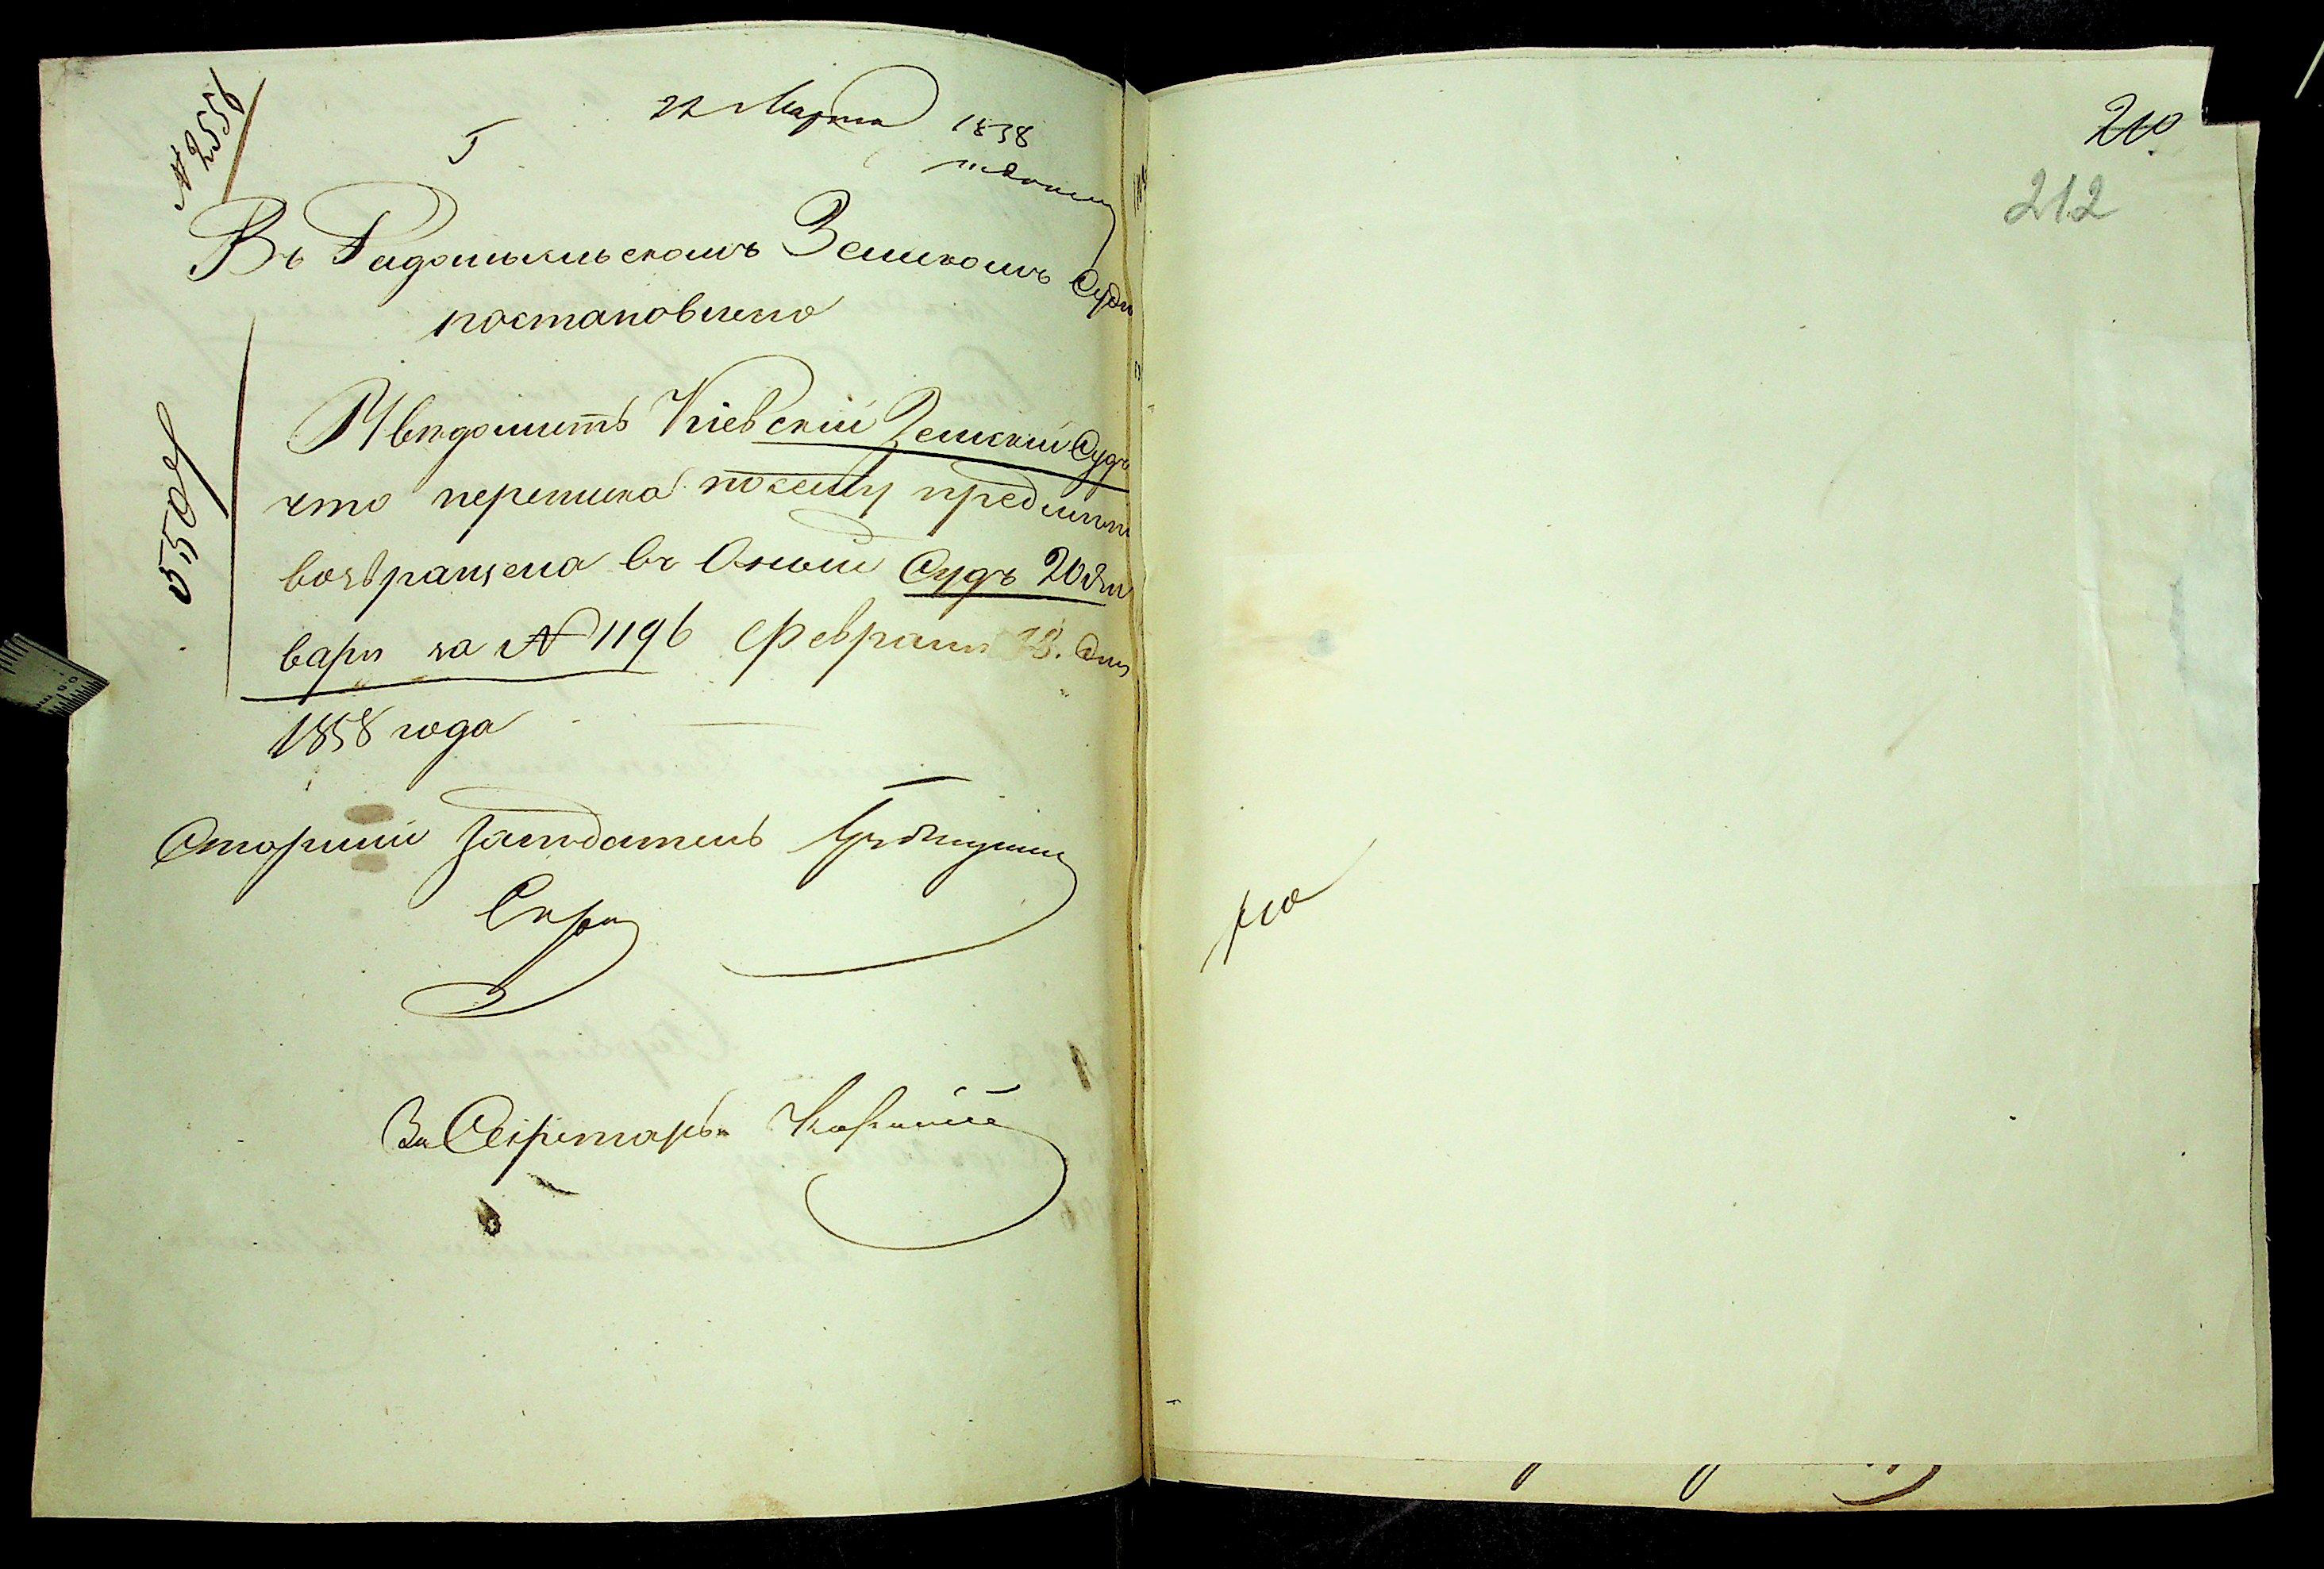 № 2556
22 Марта 1858
Въ Радомысльскомъ Земскомъ Суде
постановлено
Уведомить Кіевскій Земскій Судъ
что переписка посему предмету
возвращена въ Оный Судъ 20 Ян
варя за № 1196 Февраля 18. дня
1858 года
550
Старшій Заседатель
Скра
За Секретаря
210
212